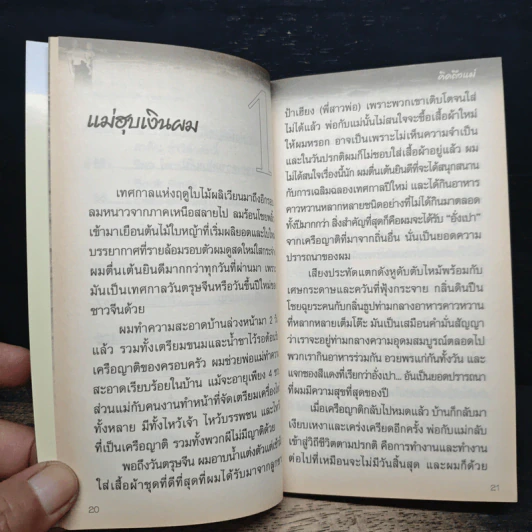 แม่ฮุบเงินผม
1
เทศกาลแห่งฤดูใบไม้ผลิเวียนมาถึงอีกรอบ
ลมหนาวจากภาคเหนือสลายไป ลมร้อนโชยพลิ้ว
เข้ามาเยือนต้นไม้ใบหญ้าที่เริ่มผลิยอดและใบใหม่
บรรยากาศที่รายล้อมรอบตัวผมดูสดใสไฉไลกระจ่าง
ผมตื่นเต้นยินดีมากกว่าทุกวันที่ผ่านมา เพราะ
มันเป็นเทศกาลวันตรุษจีนหรือวันขึ้นปีใหม่ของ
ชาวจีนด้วย
ผมทำความสะอาดบ้านล่วงหน้ามา 2 วัน
แล้ว รวมทั้งเตรียมขนมและน้ำชาไว้รอต้อนรับ
เครือญาติของครอบครัว ผมช่วยพ่อแม่ทำความ
สะอาดเรียบร้อยในบ้าน แม้จะอายุเพียง 4 ขวบ
ส่วนแม่กับคนงานทำหน้าที่จัดเตรียมเครื่องไหว้
ทั้งหลาย มีทั้งไหว้เจ้า ไหว้บรรพชน และไหว้ผี
ที่เป็นเครือญาติ รวมทั้งพวกผีไม่มีญาติด้วย
พอถึงวันตรุษจีน ผมอาบน้ำแต่งตัวแต่เช้า
ใส่เสื้อผ้าชุดที่ดีที่สุดที่ผมได้รับมาจากลูกของ
20
คิดถึงแม่
ป้าเฮียง (พี่สาวพ่อ) เพราะพวกเขาเติบโตจนใส่
ไม่ได้แล้ว พ่อกับแม่นั้นไม่สนใจจะซื้อเสื้อผ้าใหม่
ให้ผมหรอก อาจเป็นเพราะไม่เห็นความจำเป็น
และในวันปกติผมก็ไม่ชอบใส่เสื้อผ้าอยู่แล้ว ผม
ไม่ได้สนใจเรื่องนี้นัก ผมตื่นเต้นยินดีที่จะได้สนุกสนาน
กับการเฉลิมฉลองเทศกาลปีใหม่ และได้กินอาหาร
คาวหวานหลากหลายชนิดอย่างที่ไม่ได้กินมาตลอด
ทั้งปีมากกว่า สิ่งสำคัญที่สุดก็คือผมจะได้รับ "อั่งเปา"
จากเครือญาติที่มาจากถิ่นอื่น นั่นเป็นยอดความ
ปรารถนาของผม
เสียงประทัดแตกดังหูดับตับไหม้พร้อมกับ
เศษกระดาษและควันที่ฟุ้งกระจาย กลิ่นดินปืน
โชยฉุยระคนกับกลิ่นธูปท่ามกลางอาหารคาวหวาน
ที่หลากหลายเต็มโต๊ะ มันเป็นเสมือนคำมั่นสัญญา
ว่าเราจะอยู่ท่ามกลางความอุดมสมบูรณ์ตลอดไป
พวกเรากินอาหารร่วมกัน อวยพรแก่กันทั้งวัน และ
แจกซองสีแดงที่เรียกว่าอั่งเปา... อันเป็นยอดปรารถนา
ที่ผมมีความสุขที่สุดของปี
เมื่อเครือญาติกลับไปหมดแล้ว บ้านก็กลับมา
เงียบเหงาและเคร่งเครียดอีกครั้ง พ่อกับแม่กลับ
เข้าสู่วิถีชีวิตตามปกติ คือการทำงานและทำงาน
ต่อไปที่เหมือนจะไม่มีวันสิ้นสุด และผมก็ด้วย
21